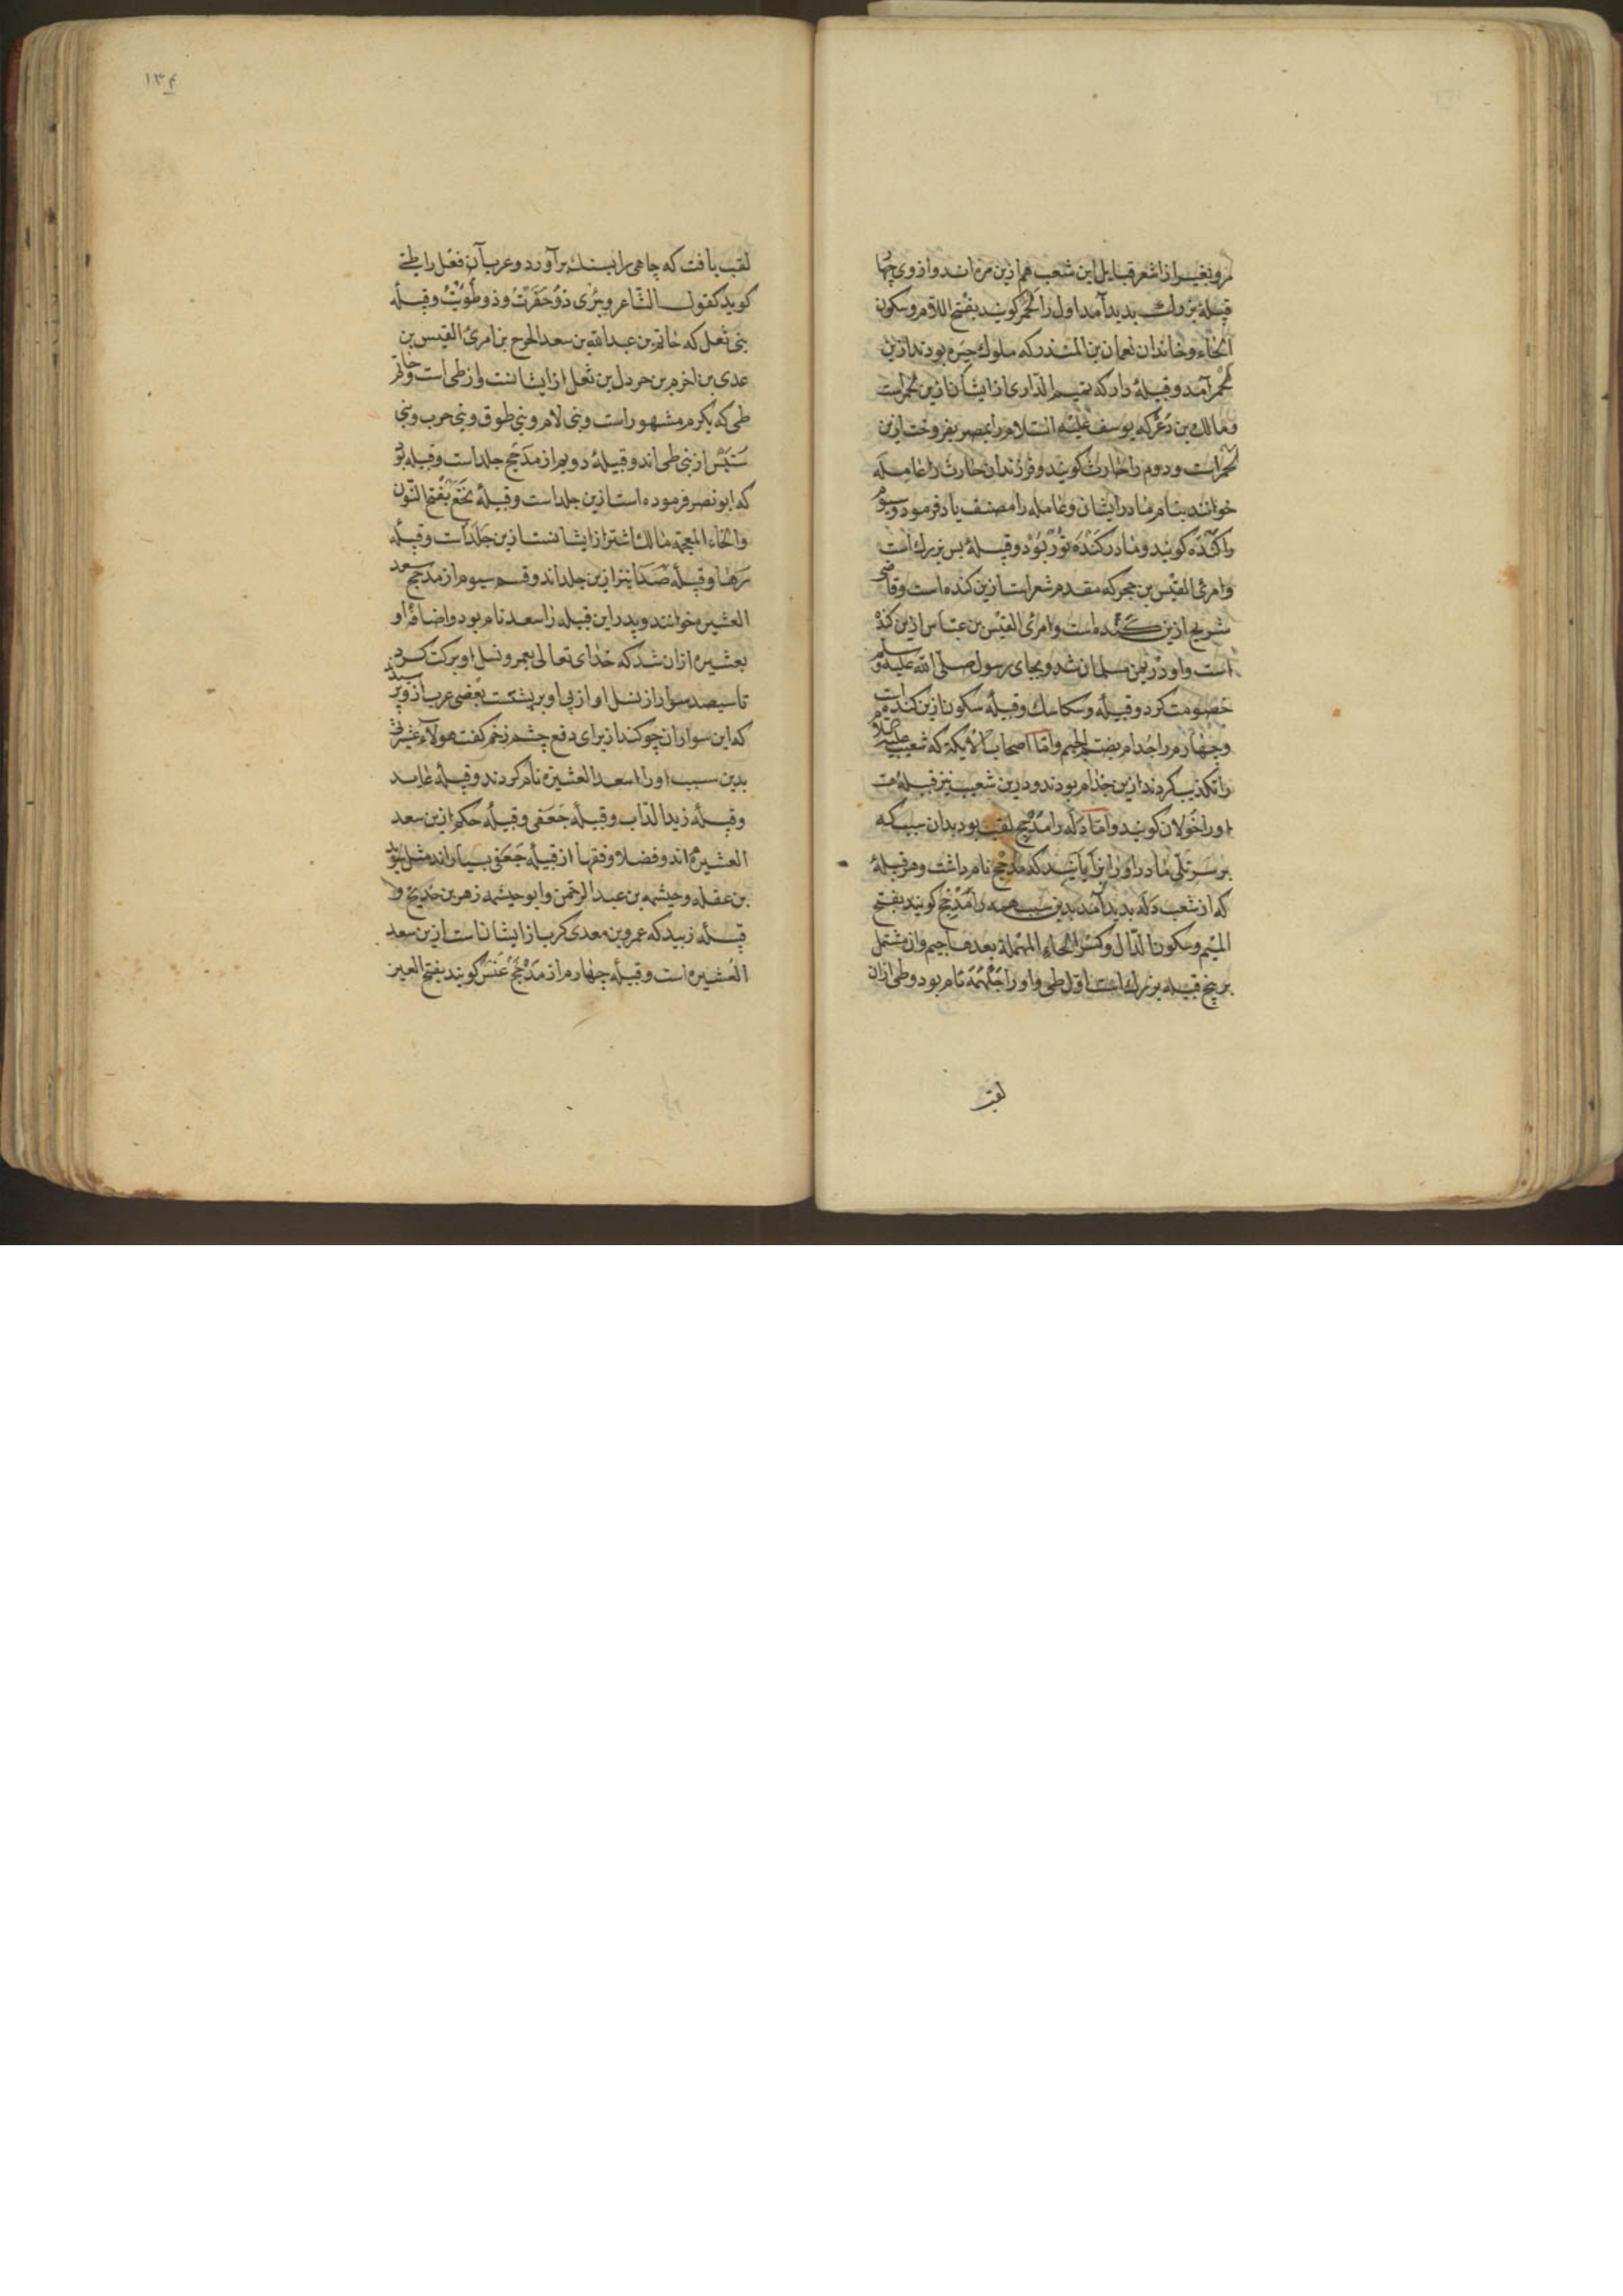 مرو بغیر از اشعر قبایل این شعب هم ازین مره اند و از وی چهار
قبیلهٔ بزرك پدید آمد اول را لَخْم کویند بفتح اللام و سکون
الخاء و خاندان نعمان بن المنذر که ملوك حیره بودند ازین
لخم آمد و قبیلهٔ دار که تمیم الداری از ایشانست ازین لخم است
و مالك بن ذعر که یوسف علیه السلام را بمصر بفروخت ازین
لخم است و دوم را حارث کویند و فرزندان حارث را عامله
خوانند بنام مادر ایشان و عامله را مصنف یاد فرمود و سیوم
را کنده کویند و مادر کنده ثور بود و قبیلهٔ بس بزرك است
و امرئ القیس بن حجر که مقدم شعراست ازین کنده است و قاضی
شریح ازین کنده است و امرئ القیس بن عباس ازین کنده
است و او در یمن مسلمان شد و بجای رسول صلی الله علیه وسلم
خصومت کرد و قبیله و سکاسك و قبیلهٔ سکون ازین کنده است
و چهارم را جذام بضم الجیم و اما اصحاب الأیکة که شعیب علیه السلام
را تکذیب کردند ازین جذام بودند و درین شعب نیز قبیلهٔ هست
او را خولان کویند و اما دَلَه را مذحج لقب بود بدان سبب که
بر سر تلی مادر او را زایانید که مذحج نام داشت و هر قبیلهٔ
که از شعب دله پدید آمد بدین سبب همه را مذحج کویند بفتح
المیم و سکون الذال و کسر الحاء المهملة بعدها جیم و ان مشتمل
بر پنج قبیله بزرك است اول طی و او را جلهمه نام بود و طی ازان
لقب
۱۳۴
لقب یافت که چاهی را بسنك برآورد و عرب آن فعل را طی
کوید کقول الشاعر وبئری ذو حَفَرْتُ وذو طَوَیْتُ و قبیلهٔ
بنی ثعل که حاتم بن عبدالله بن سعد الحرح بن امرئ القیس بن
عدی بن اخزم بن حردل بن ثعل از ایشانست و از طی است و حاتم
طی که بکرم مشهور است و بنی لام و بنی طوق و بنی حرب و بنی
سنبس از بنی طی اند و قبیلهٔ دویم از مذحج جلد است و قبیله
که ابو نصر فرموده است ازین جلد است و قبیلهٔ نخع بفتح النون
والخاء المعجمه مالك اشتر از ایشانست ازین جلد است و قبیلهٔ
رها و قبیلهٔ صدا نیز ازین جلد اند و قسم سیوم از مذحج سعد
العشیره خوانند و پدر این قبیله را سعد نام بود و اضافهٔ او
بعشیره ازان شد که خدای تعالی بعمر و نسل او برکت کرد
تا سیصد سوار از نسل او از پی او برنشست بعضی عرب از وی پرسیدند
که این سواران چو کند از برای دفع چشم زخم کفت هولآء عشیرتی
بدین سبب او را سعد العشیرة نام کردند و قبیلهٔ عاید
و قبیلهٔ زیدالدّاب و قبیلهٔ جعفی و قبیلهٔ حکم ازین سعد
العشیره اند و فضلا و فقها از قبیلهٔ جعفی بسیار اند مثل سوید
بن عفله و حیثمه بن عبدالرحمن و ابو حیثمه زهر بن خدیج و
قبیلهٔ زبید که عمرو بن معدی کرب از ایشانست ازین سعد
العشیره است و قبیلهٔ چهارم از مذحج عنس کویند بفتح العین